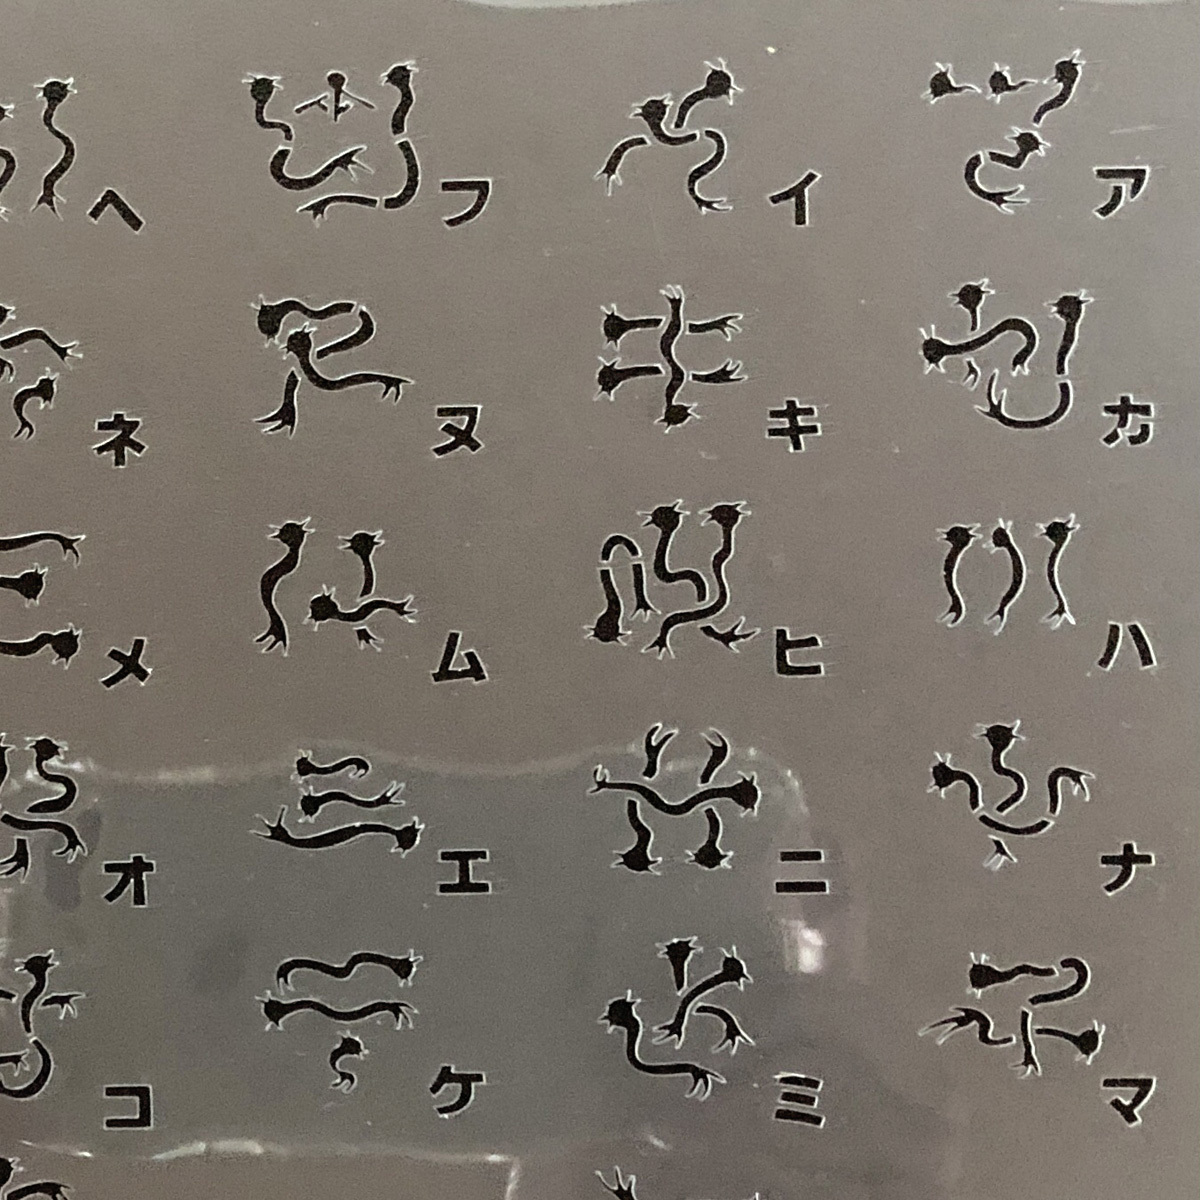 ヘ フ イ ア
ネ ヌ キ カ
メ ム ヒ ハ
オ エ ニ ナ
コ ケ ミ マ